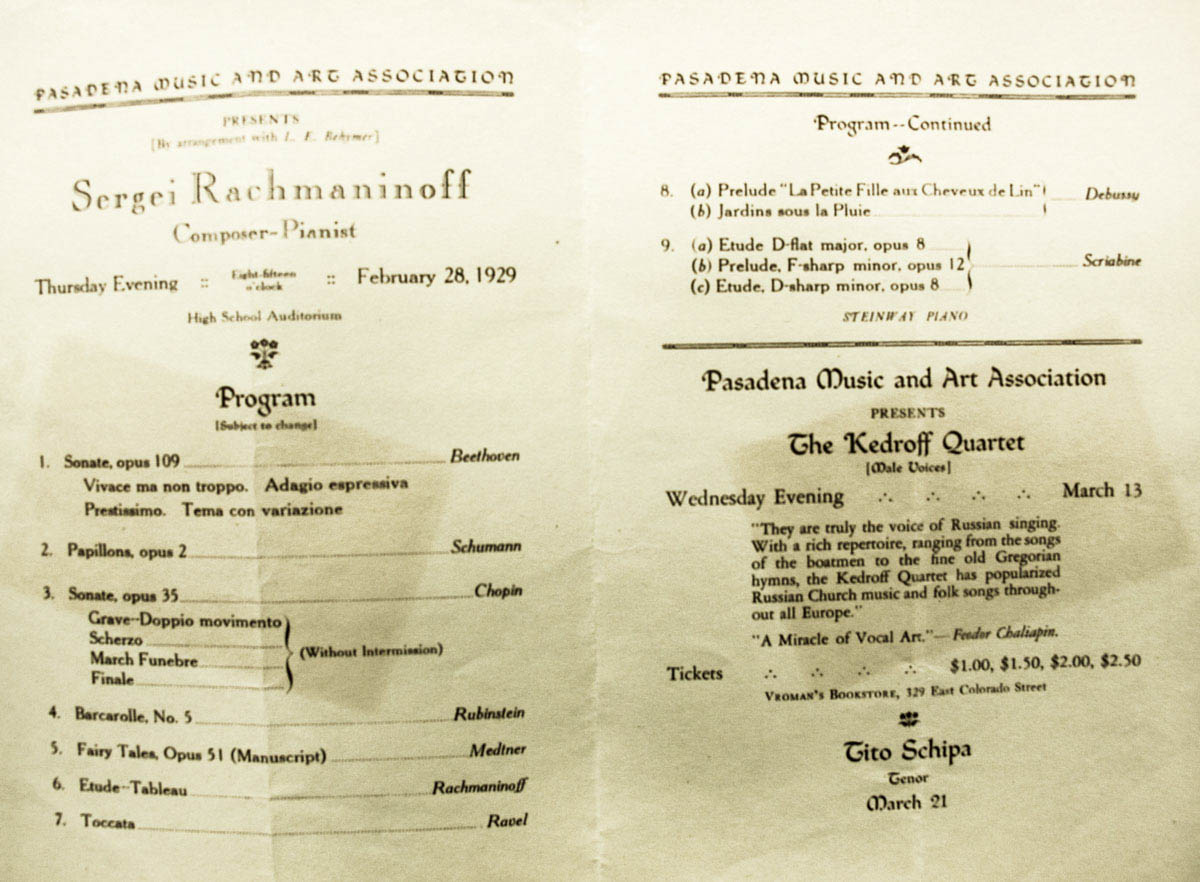 PASADENA MUSIC AND ART ASSOCIATION
PRESENTS
[By arrangement with L. E. Behymer]
Sergei Rachmaninoff
Composer-Pianist
Thursday Evening :: Eight-fifteen o'clock :: February 28, 1929
High School Auditorium
Program
[Subject to change]
1. Sonate, opus 109 Beethoven
Vivace ma non troppo. Adagio espressiva
Prestissimo. Tema con variazione
2. Papillons, opus 2 Schumann
3. Sonate, opus 35 Chopin
Grave--Doppio movimento
Scherzo
(Without Intermission)
March Funebre
Finale
4. Barcarolle, No. 5 Rubinstein
5. Fairy Tales, Opus 51 (Manuscript) Medtner
6. Etude--Tableau Rachmaninoff
7. Toccata Ravel
PASADENA MUSIC AND ART ASSOCIATION
Program--Continued
8. (a) Prelude "La Petite Fille aux Cheveux de Lin" Debussy
(b) Jardins sous la Pluie
9. (a) Etude D-flat major, opus 8
(b) Prelude, F-sharp minor, opus 12 Scriabine
(c) Etude, D-sharp minor, opus 8
STEINWAY PIANO
Pasadena Music and Art Association
PRESENTS
The Kedroff Quartet
[Male Voices]
Wednesday Evening ∴ ∴ ∴ ∴ March 13
"They are truly the voice of Russian singing.
With a rich repertoire, ranging from the songs
of the boatmen to the fine old Gregorian
hymns, the Kedroff Quartet has popularized
Russian Church music and folk songs through-
out all Europe."
"A Miracle of Vocal Art."—Feodor Chaliapin.
Tickets ∴ ∴ ∴ ∴ $1.00, $1.50, $2.00, $2.50
VROMAN'S BOOKSTORE, 329 East Colorado Street
Tito Schipa
Tenor
March 21